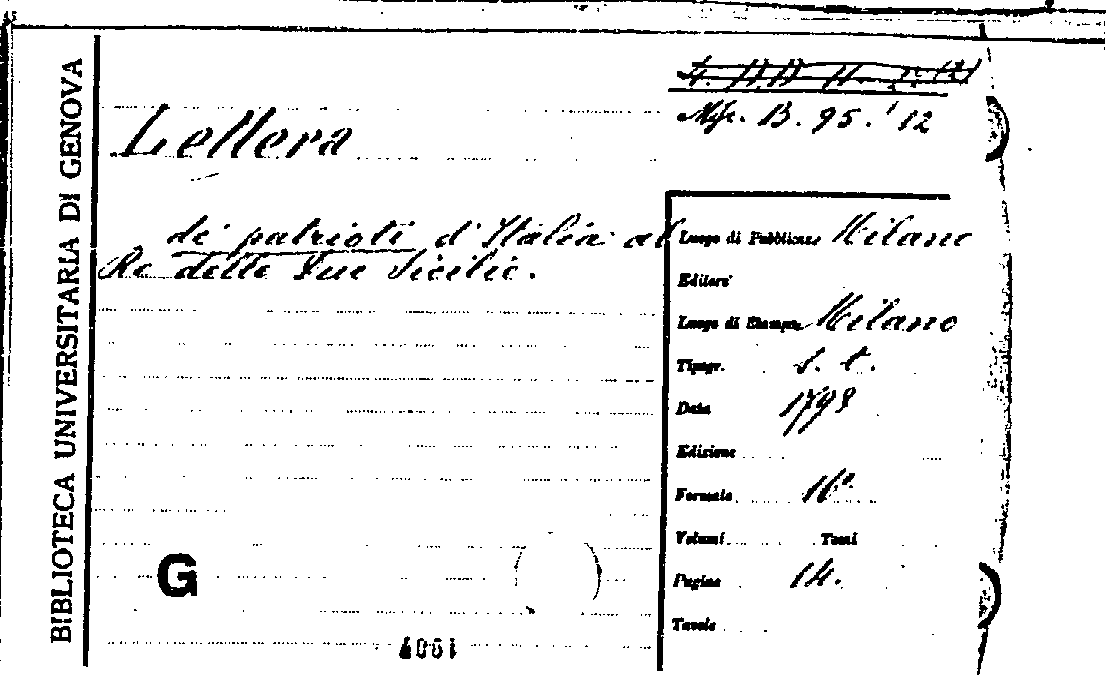 BIBLIOTECA UNIVERSITARIA DI GENOVA
Lettera
Misc. B. 95. 12
di patrioti d'Italia al
Re delle Due Sicilie.
Luogo di Pubblicaz. Milano
Editore
Luogo di Stampa Milano
Tipogr. s. t.
Data 1798
Edizione
Formato 16°
Volumi Tomi
Pagine 14.
Tavole
G